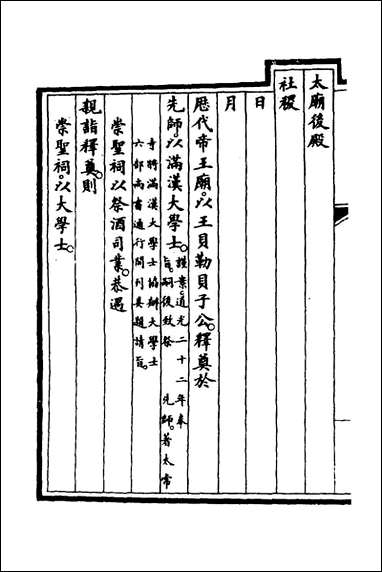 太廟後殿
社稷
日
月
歷代帝王廟。以王貝勒貝子公。釋奠於
先師。以滿漢大學士。謹案。道光二十二年奉
旨。嗣後致祭 先師。著太常
寺將滿漢大學士協辦大學士
六部尚書通行開列具題請旨。
崇聖祠以祭酒司業。恭遇
親詣釋奠。則
崇聖祠。以大學士。